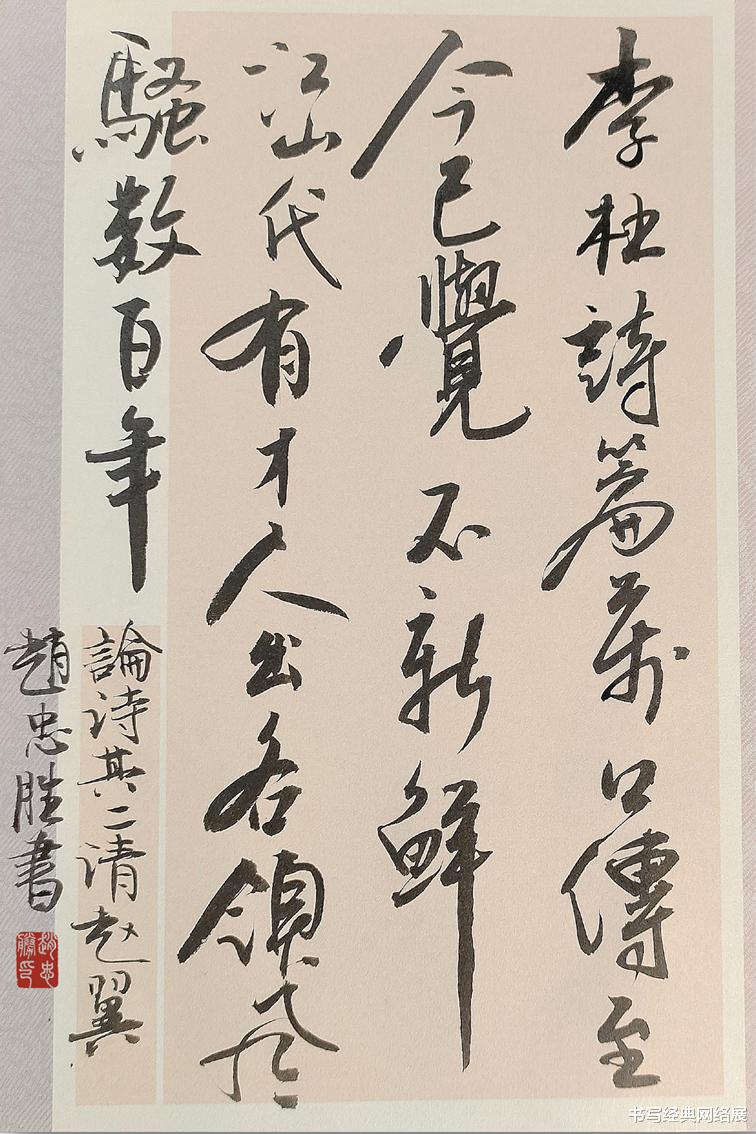 李杜詩篇萬口傳至
今已覺不新鮮
江山代有才人出各領风
騷数百年
論诗其二清赵翼
趙忠胜書
趙忠勝印
书写经典网络展